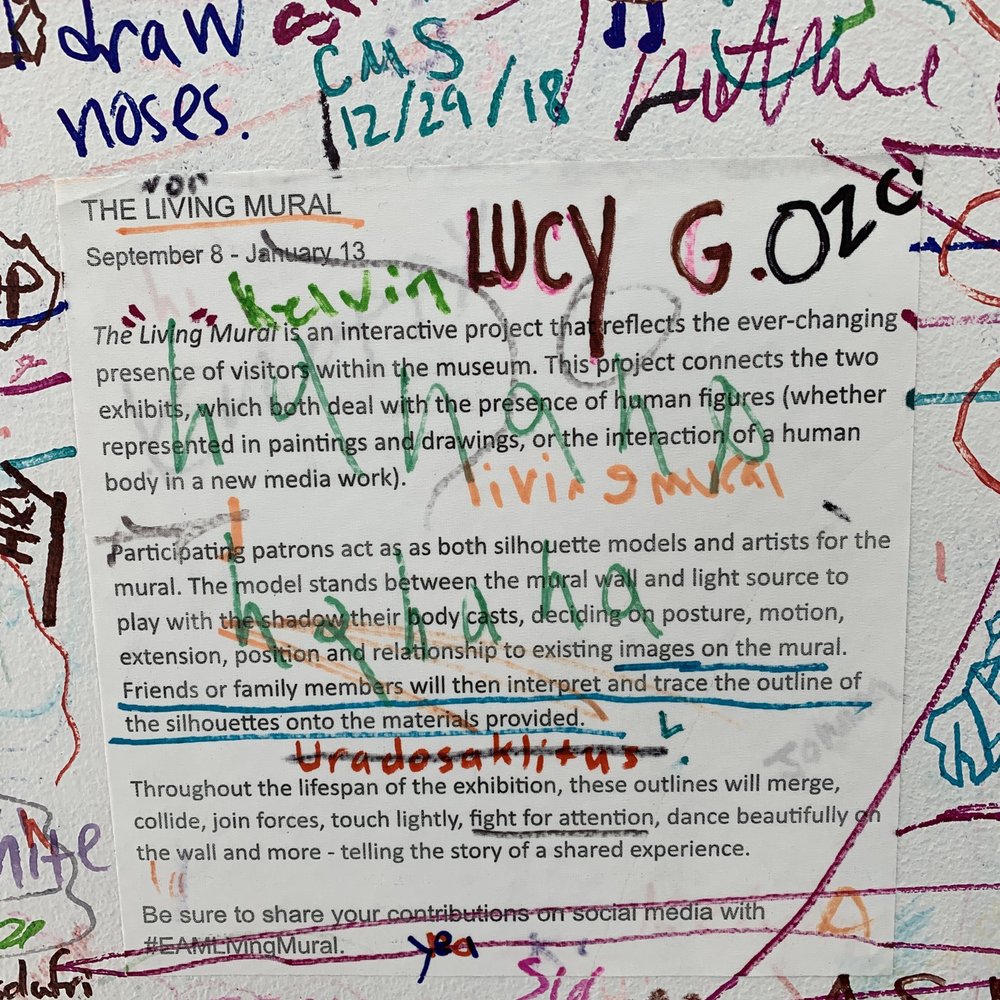 draw
noses.
CMS
12/29/18
THE LIVING MURAL
September 8 - January 13
LUCY G. OZC
Kelvin
"The Living Mural" is an interactive project that reflects the ever-changing
presence of visitors within the museum. This project connects the two
exhibits, which both deal with the presence of human figures (whether
represented in paintings and drawings, or the interaction of a human
body in a new media work).
hahaha
living mural
Participating patrons act as as both silhouette models and artists for the
mural. The model stands between the mural wall and light source to
play with the shadow their body casts, deciding on posture, motion,
extension, position and relationship to existing images on the mural.
Friends or family members will then interpret and trace the outline of
the silhouettes onto the materials provided.
hahaha
Uradosaklitus
Throughout the lifespan of the exhibition, these outlines will merge,
collide, join forces, touch lightly, fight for attention, dance beautifully on
the wall and more - telling the story of a shared experience.
Be sure to share your contributions on social media with
#EAMLivingMural.
yea
Sid